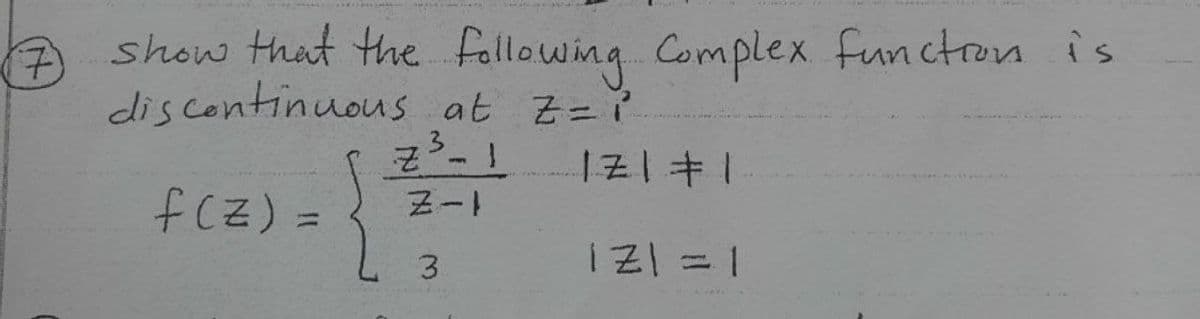 ⑦ show that the following Complex function is
discontinuous at z=i
f(z) = { z³-1 / z-1   |z| ≠ 1
3   |z| = 1